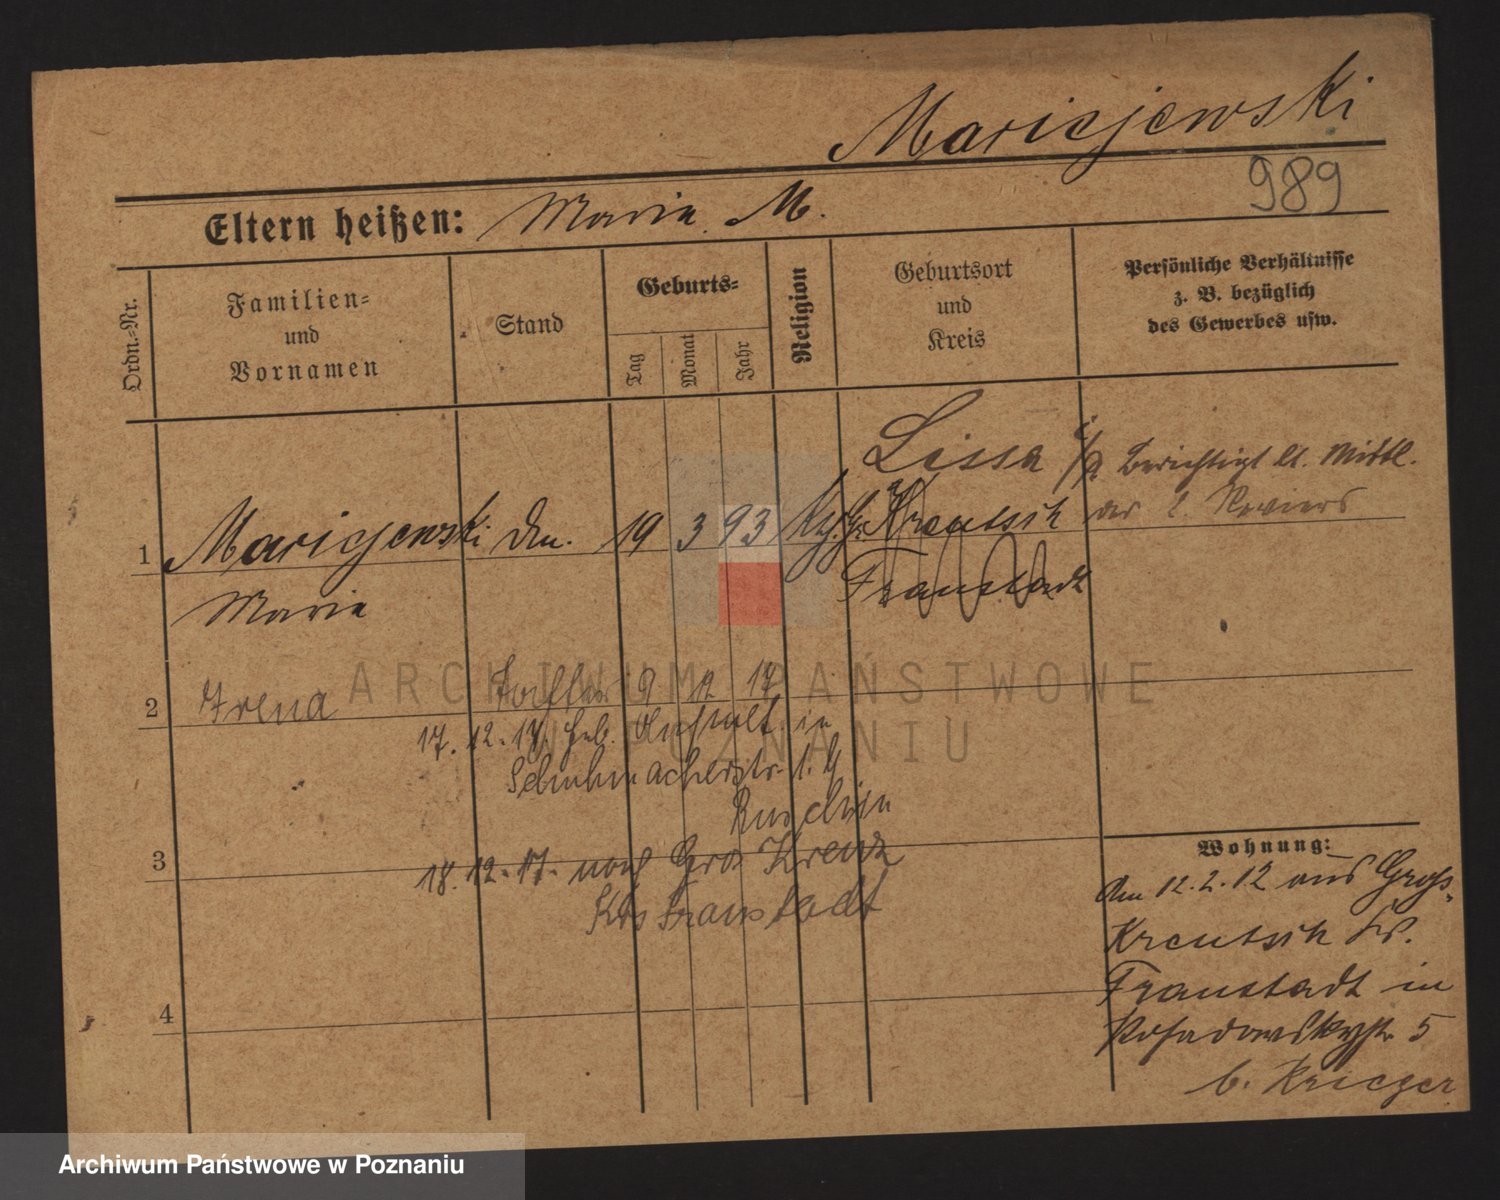 Maricjewski
989
Eltern heißen: Maria M.
Ordn.-Nr.
Familien-
und
Vornamen
Stand
Geburts-
Tag
Monat
Jahr
Religion
Geburtsort
und
Kreis
Persönliche Verhältnisse
z. B. bezüglich
des Gewerbes usw.
Lissa i/P. Berichtigt lt. Mittl.
des 2. Reviers
1 Maricjewski 19 3 93 Gr. Kreutsch
Fraustadt
Maria
2 Irena Tochter 9 12 17
17. 12. 17. Heb. Anstalt in
Schuhmacherstr.
18. 12. 17. nach Gros Kreuz
Krs Fraustadt
3
4
Wohnung:
Am 12.2.12 aus Gross-
Kreutsch Kr.
Fraustadt in
Posadowskystr 5
b. Krieger
ARCHIWUM PAŃSTWOWE
W POZNANIU
Archiwum Państwowe w Poznaniu